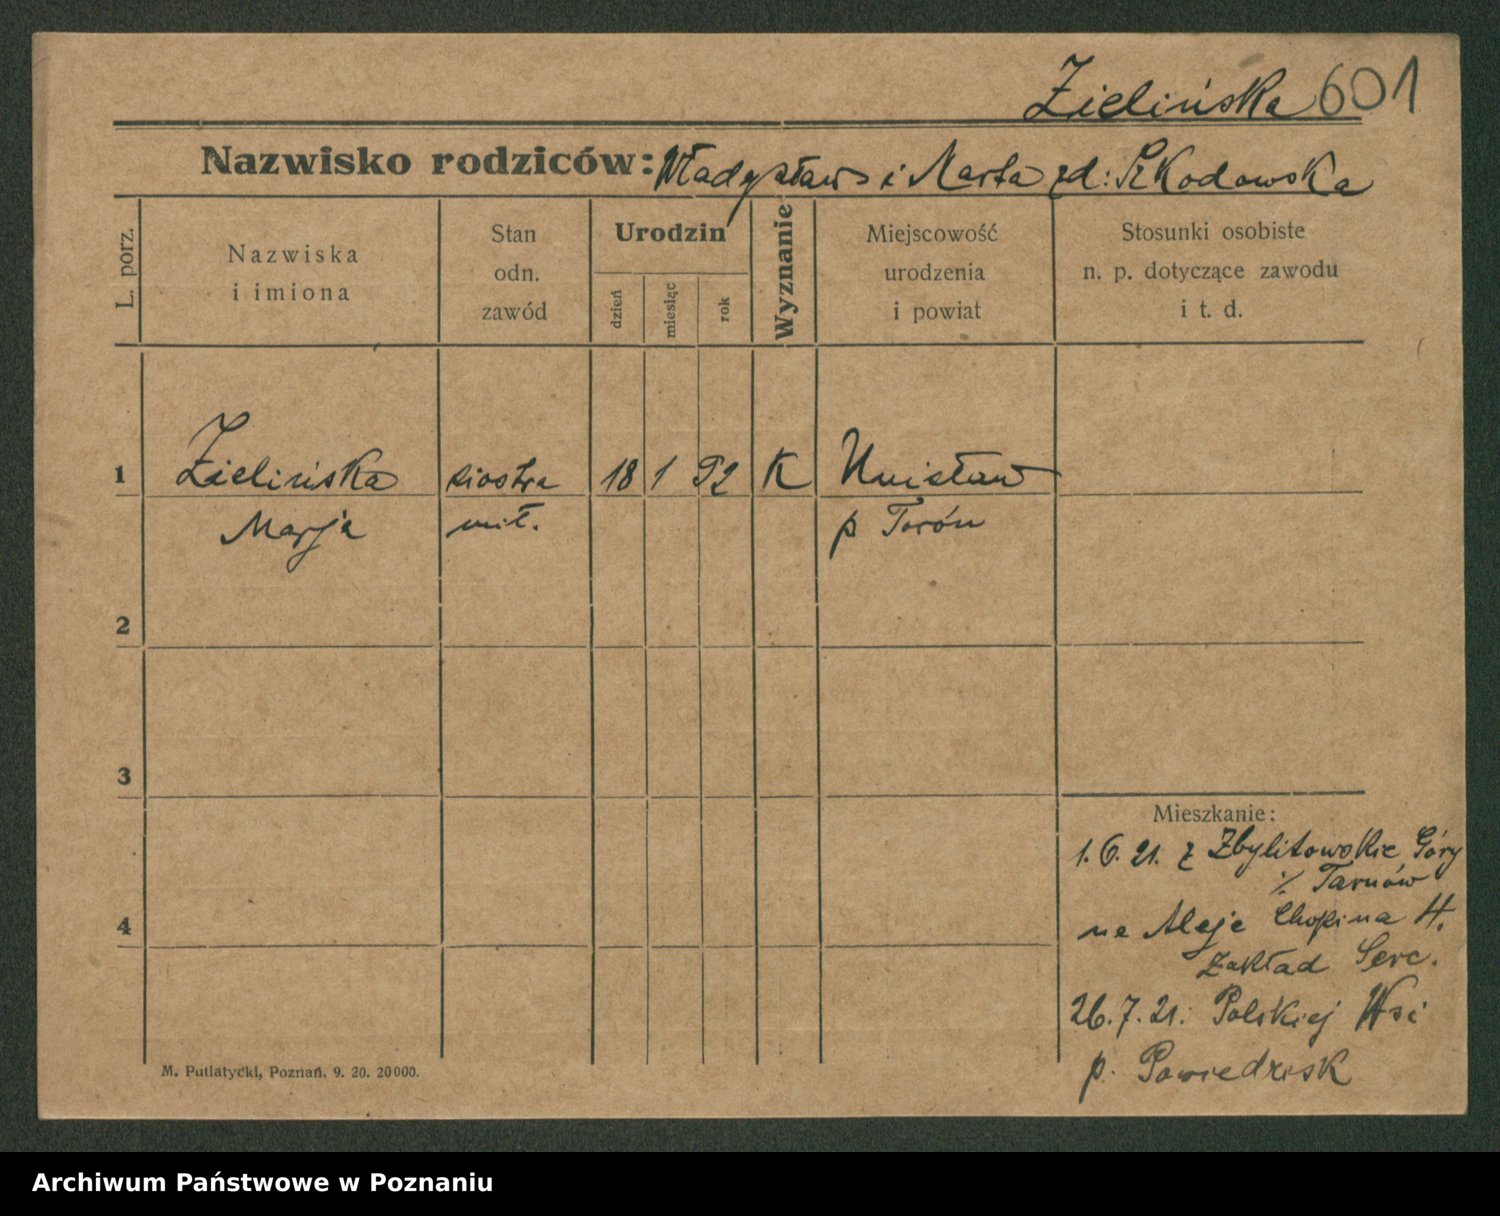 Zielińska 601
Nazwisko rodziców: Władysław i Marta zd: Szkodowska
L. porz.
Nazwiska
i imiona
Stan
odn.
zawód
Urodzin
dzień
miesiąc
rok
Wyznanie
Miejscowość
urodzenia
i powiat
Stosunki osobiste
n. p. dotyczące zawodu
i t. d.
1 Zielińska siostra 18 1 92 K Unisław
Marja mił. p Toruń
2
3
4
Mieszkanie:
1.6.21. z Zbylitowskie Góry
Tarnów
na Aleje Chopina 4.
zakład Serc.
26.7.21: Polskiej Wsi
p.
M. Putiatycki, Poznań. 9. 20. 20000.
Archiwum Państwowe w Poznaniu